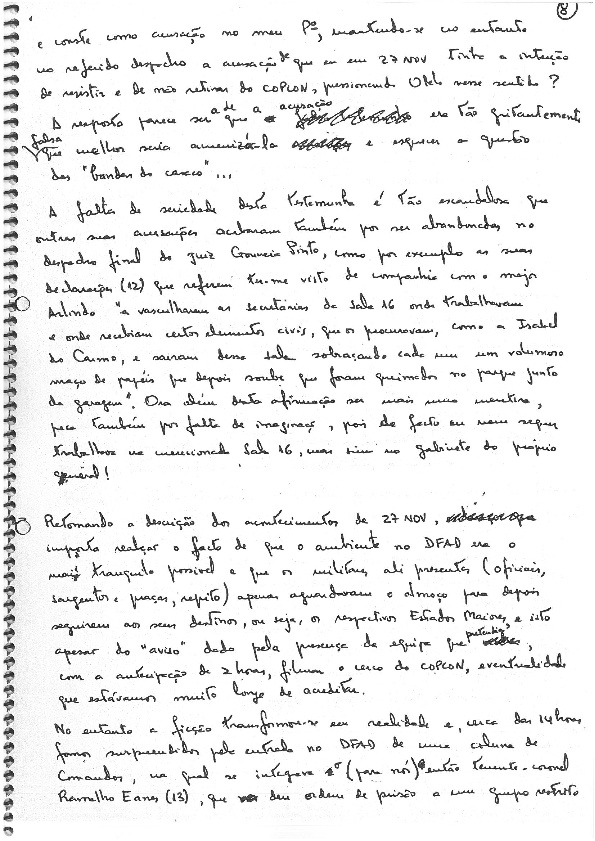 8
e conste como acusação no meu Pº, mantendo-se no entanto
no referido despacho a acusação de que eu em 27 NOV tinha a intenção
de resistir e de não retirar do COPCON, pressionando Otelo nesse sentido?
A resposta parece ser a de que a acusação era tão gritantemente
falsa que melhor seria amenizá-la e esquecer a questão
das "bandas do casaco"...
A falta de seriedade desta testemunha é tão escandalosa que
outras suas acusações acabaram também por ser abandonadas no
despacho final do juiz Gouveia Pinto, como por exemplo as suas
declarações (12) que referem ter-me visto de companhia com o major
Arlindo "a vasculharem as secretárias da Sala 16 onde trabalhavam
e onde recebiam certos elementos civis, que os procuravam, como a Isabel
do Carmo, e sairam dessa sala sobraçando cada um um volumoso
maço de papéis que depois soube que foram queimados no parque junto
da garagem". Ora além desta afirmação ser mais uma mentira,
peca também por falta de imaginação, pois de facto eu nem sequer
trabalhava na mencionada Sala 16, mas sim no gabinete do próprio
general!
Retomando a descrição dos acontecimentos de 27 NOV,
importa realçar o facto de que o ambiente no DFAD era o
mais tranquilo possível e que os militares ali presentes (oficiais,
sargentos e praças, repito) apenas aguardavam o almoço para depois
seguirem aos seus destinos, ou seja, os respectivos Estados Maiores, e isto
apesar do "aviso" dado pela presença da equipa que pretendia,
com a antecipação de 2 horas, filmar o cerco do COPCON, eventualidade
que estávamos muito longe de acreditar.
No entanto a ficção transformou-se em realidade e, cerca das 14 horas
fomos surpreendidos pela entrada no DFAD de uma coluna de
Comandos, na qual se integrava (para nós) o então tenente-coronel
Ramalho Eanes (13), que deu ordem de prisão a um grupo restrito